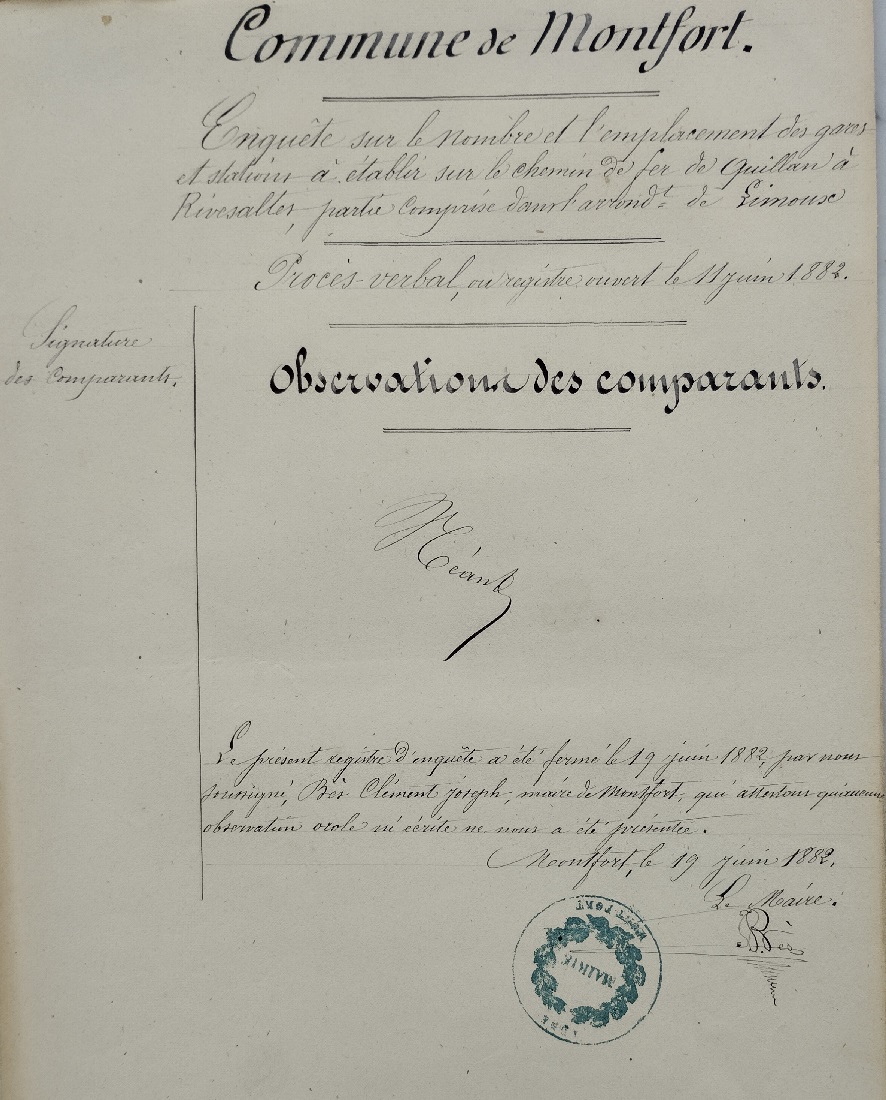 Commune de Montfort.
Enquête sur le nombre et l'emplacement des gares
et stations à établir sur le chemin de fer de Quillan à
Rivesaltes, partie comprise dans l'arrond.t de Limoux
Procès-verbal, ou registre ouvert le 11 juin 1882.
Signature
des comparants.
Observations des comparants.
Néant
Le présent registre d'enquête a été fermé le 19 juin 1882, par nous
soussigné, Bès Clément Joseph, maire de Montfort, qui attestons qu'aucune
observation orale ni écrite ne nous a été présentée.
Montfort, le 19 juin 1882.
Le Maire:
Bès
MONTFORT
MAIRIE